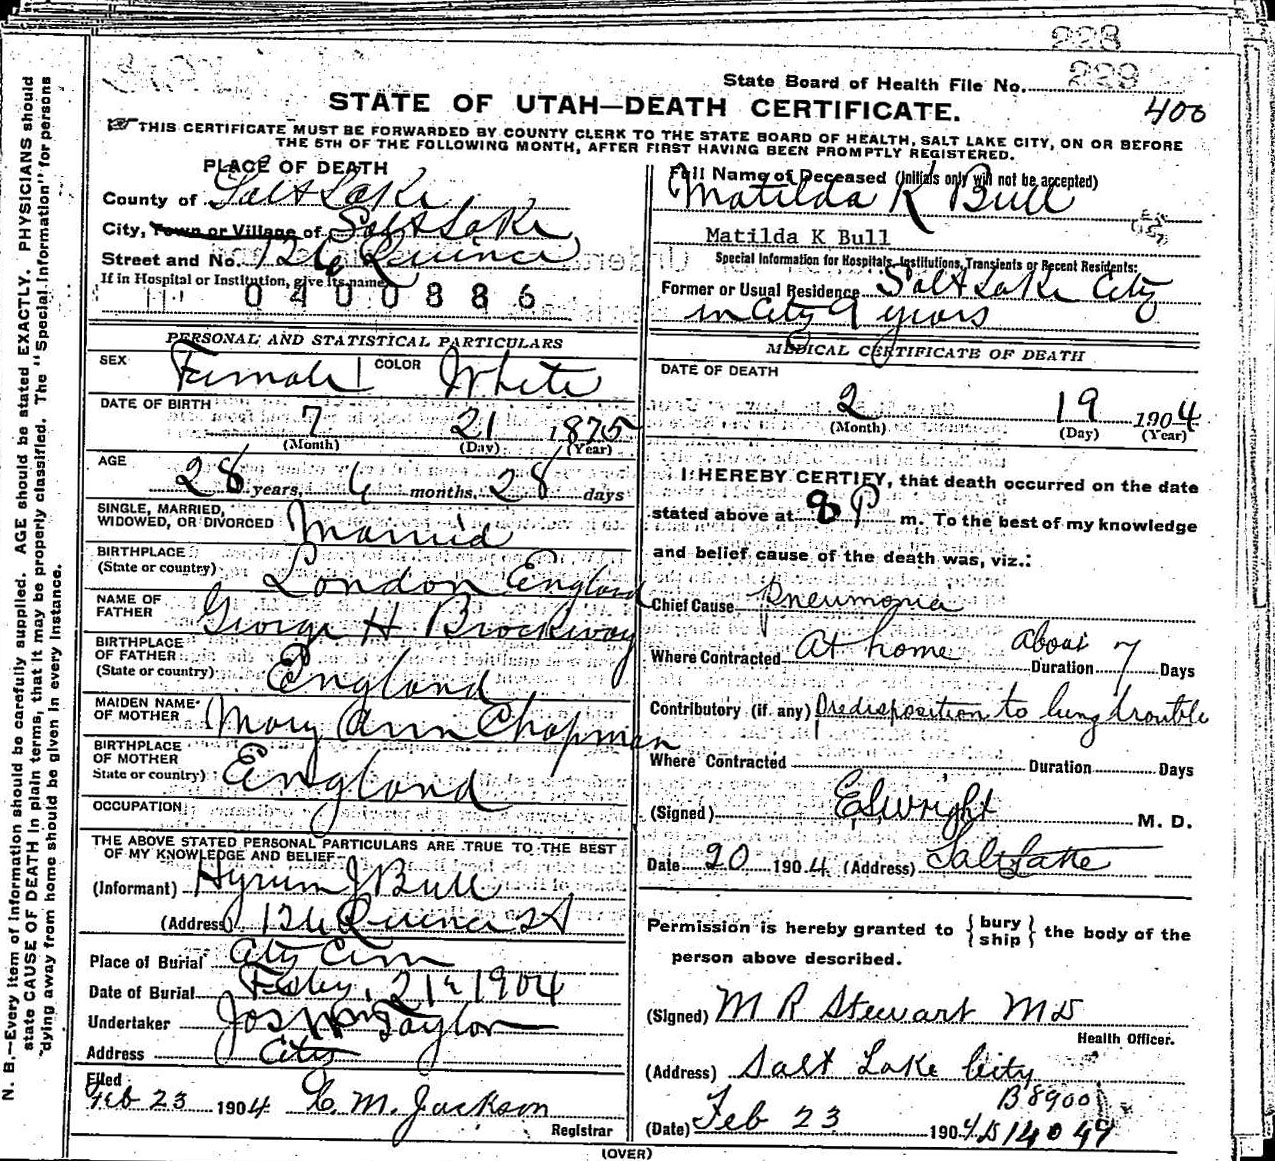 228
State Board of Health File No. 229
400
STATE OF UTAH—DEATH CERTIFICATE.
☞ THIS CERTIFICATE MUST BE FORWARDED BY COUNTY CLERK TO THE STATE BOARD OF HEALTH, SALT LAKE CITY, ON OR BEFORE
THE 5TH OF THE FOLLOWING MONTH, AFTER FIRST HAVING BEEN PROMPTLY REGISTERED.
PLACE OF DEATH
County of Salt Lake
City, Town or Village of Salt Lake
Street and No. 126 Quince
If in Hospital or Institution, give its name
0400886
Full Name of Deceased (Initials only will not be accepted)
Matilda K Bull
Matilda K Bull
Special Information for Hospitals, Institutions, Transients or Recent Residents:
Former or Usual Residence Salt Lake City
in City 9 years
PERSONAL AND STATISTICAL PARTICULARS
SEX Female COLOR White
DATE OF BIRTH
7 21 1875
(Month) (Day) (Year)
AGE
28 years, 6 months, 28 days
SINGLE, MARRIED,
WIDOWED, OR DIVORCED Married
BIRTHPLACE
(State or country) London England
NAME OF
FATHER George H Brockway
BIRTHPLACE
OF FATHER
(State or country) England
MAIDEN NAME
OF MOTHER Mary Ann Chapman
BIRTHPLACE
OF MOTHER
State or country) England
OCCUPATION
THE ABOVE STATED PERSONAL PARTICULARS ARE TRUE TO THE BEST
OF MY KNOWLEDGE AND BELIEF
(Informant) Hyrum J Bull
(Address) 126 Quince St
Place of Burial City Cem
Date of Burial Feby. 21st 1904
Undertaker Jos Wm Taylor
Address City
Filed
Feb 23 1904 C. M. Jackson
Registrar
MEDICAL CERTIFICATE OF DEATH
DATE OF DEATH
2 19 1904
(Month) (Day) (Year)
I HEREBY CERTIFY, that death occurred on the date
stated above at 8 P m. To the best of my knowledge
and belief cause of the death was, viz.:
Chief Cause Pneumonia
Where Contracted At home about Duration 7 Days
Contributory (if any) Predisposition to lung trouble
Where Contracted Duration Days
(Signed) E.S. Wright M. D.
Date 20 1904 (Address) Salt Lake
Permission is hereby granted to { bury ship } the body of the
person above described.
(Signed) M R Stewart MD
Health Officer.
(Address) Salt Lake City
B 8900
(Date) Feb 23 1904
D 14049
(OVER)
N. B.—Every item of information should be carefully supplied. AGE should be stated EXACTLY. PHYSICIANS should
state CAUSE OF DEATH in plain terms, that it may be properly classified. The "Special Information" for persons
dying away from home should be given in every instance.